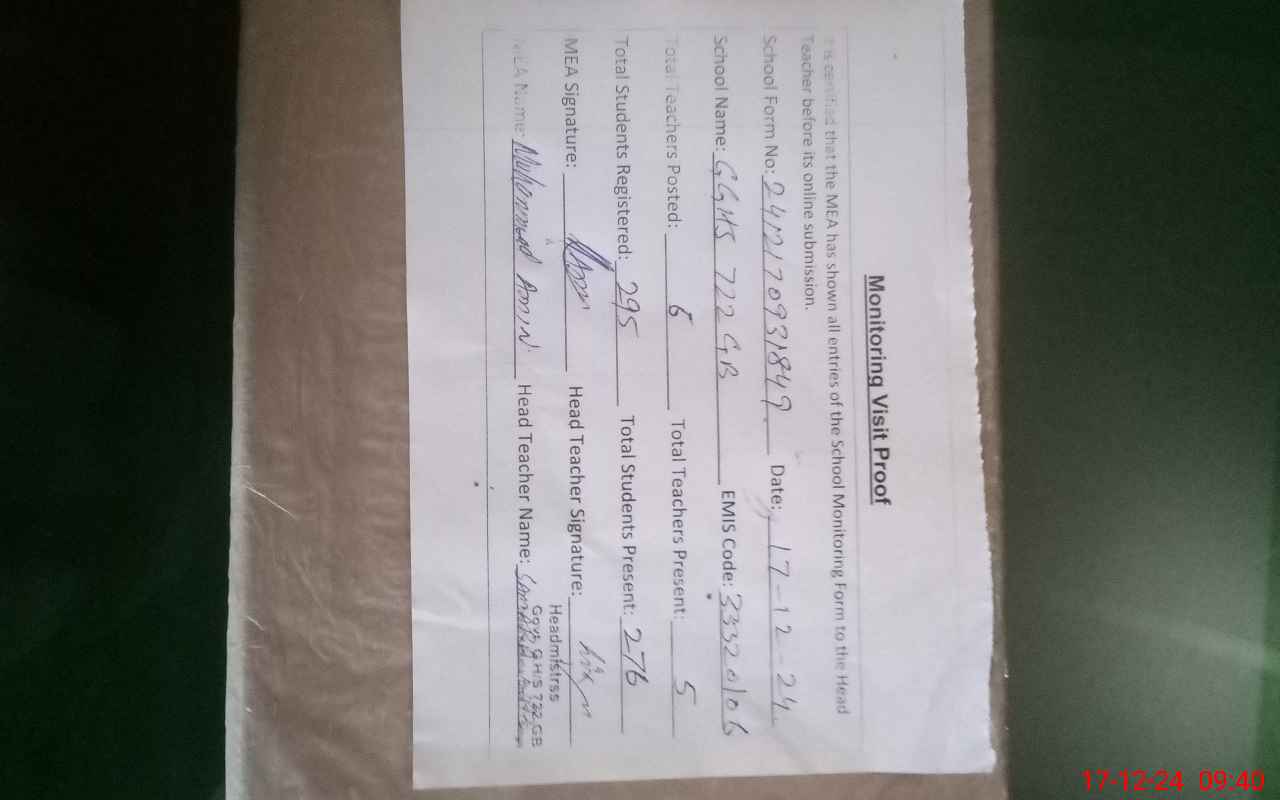 Monitoring Visit Proof
It is certified that the MEA has shown all entries of the School Monitoring Form to the Head
Teacher before its online submission.
School Form No: 2412170931849 Date: 17-12-24
School Name: GGHS 722 GB EMIS Code: 33320106
Total Teachers Posted: 6 Total Teachers Present: 5
Total Students Registered: 295 Total Students Present: 276
MEA Signature: Head Teacher Signature:
Headmistrss
MEA Name: Muhammad Amin Head Teacher Name:
Govt. G H/S 722 GB
17-12-24 09:40